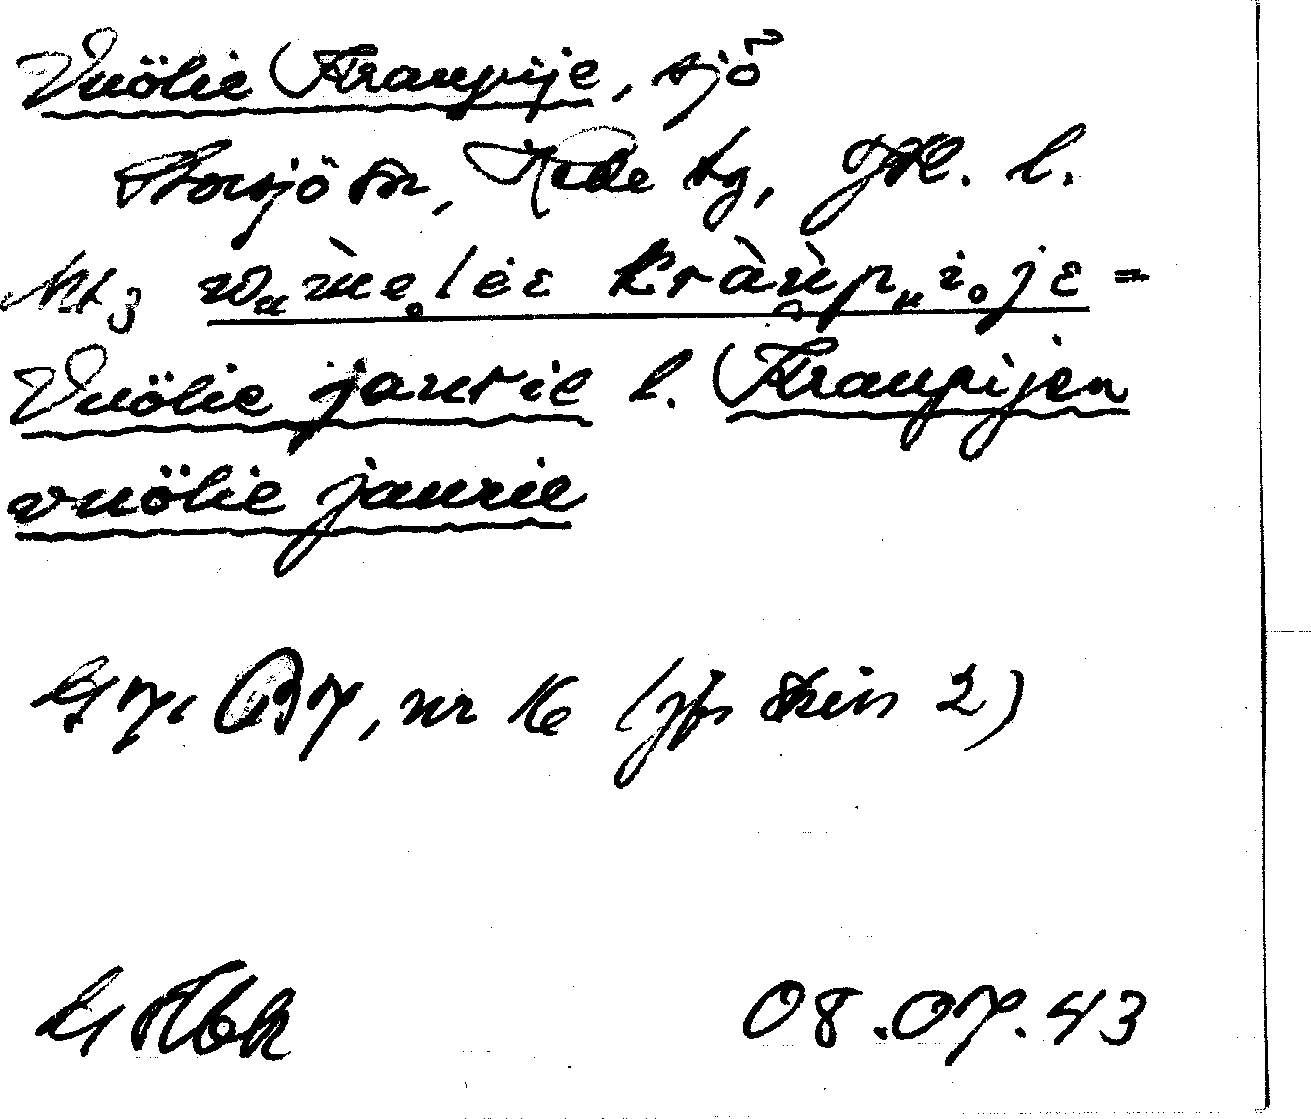 Vuölie Kraupije, sjö
Storsjö sn, Hede tg, Jtl. l.
vuölie kràu̯pije =
Vuölie jaurie l. Kraupijen
vuölie jaurie
nr 16 (jfr skiss 2)
08.07.43